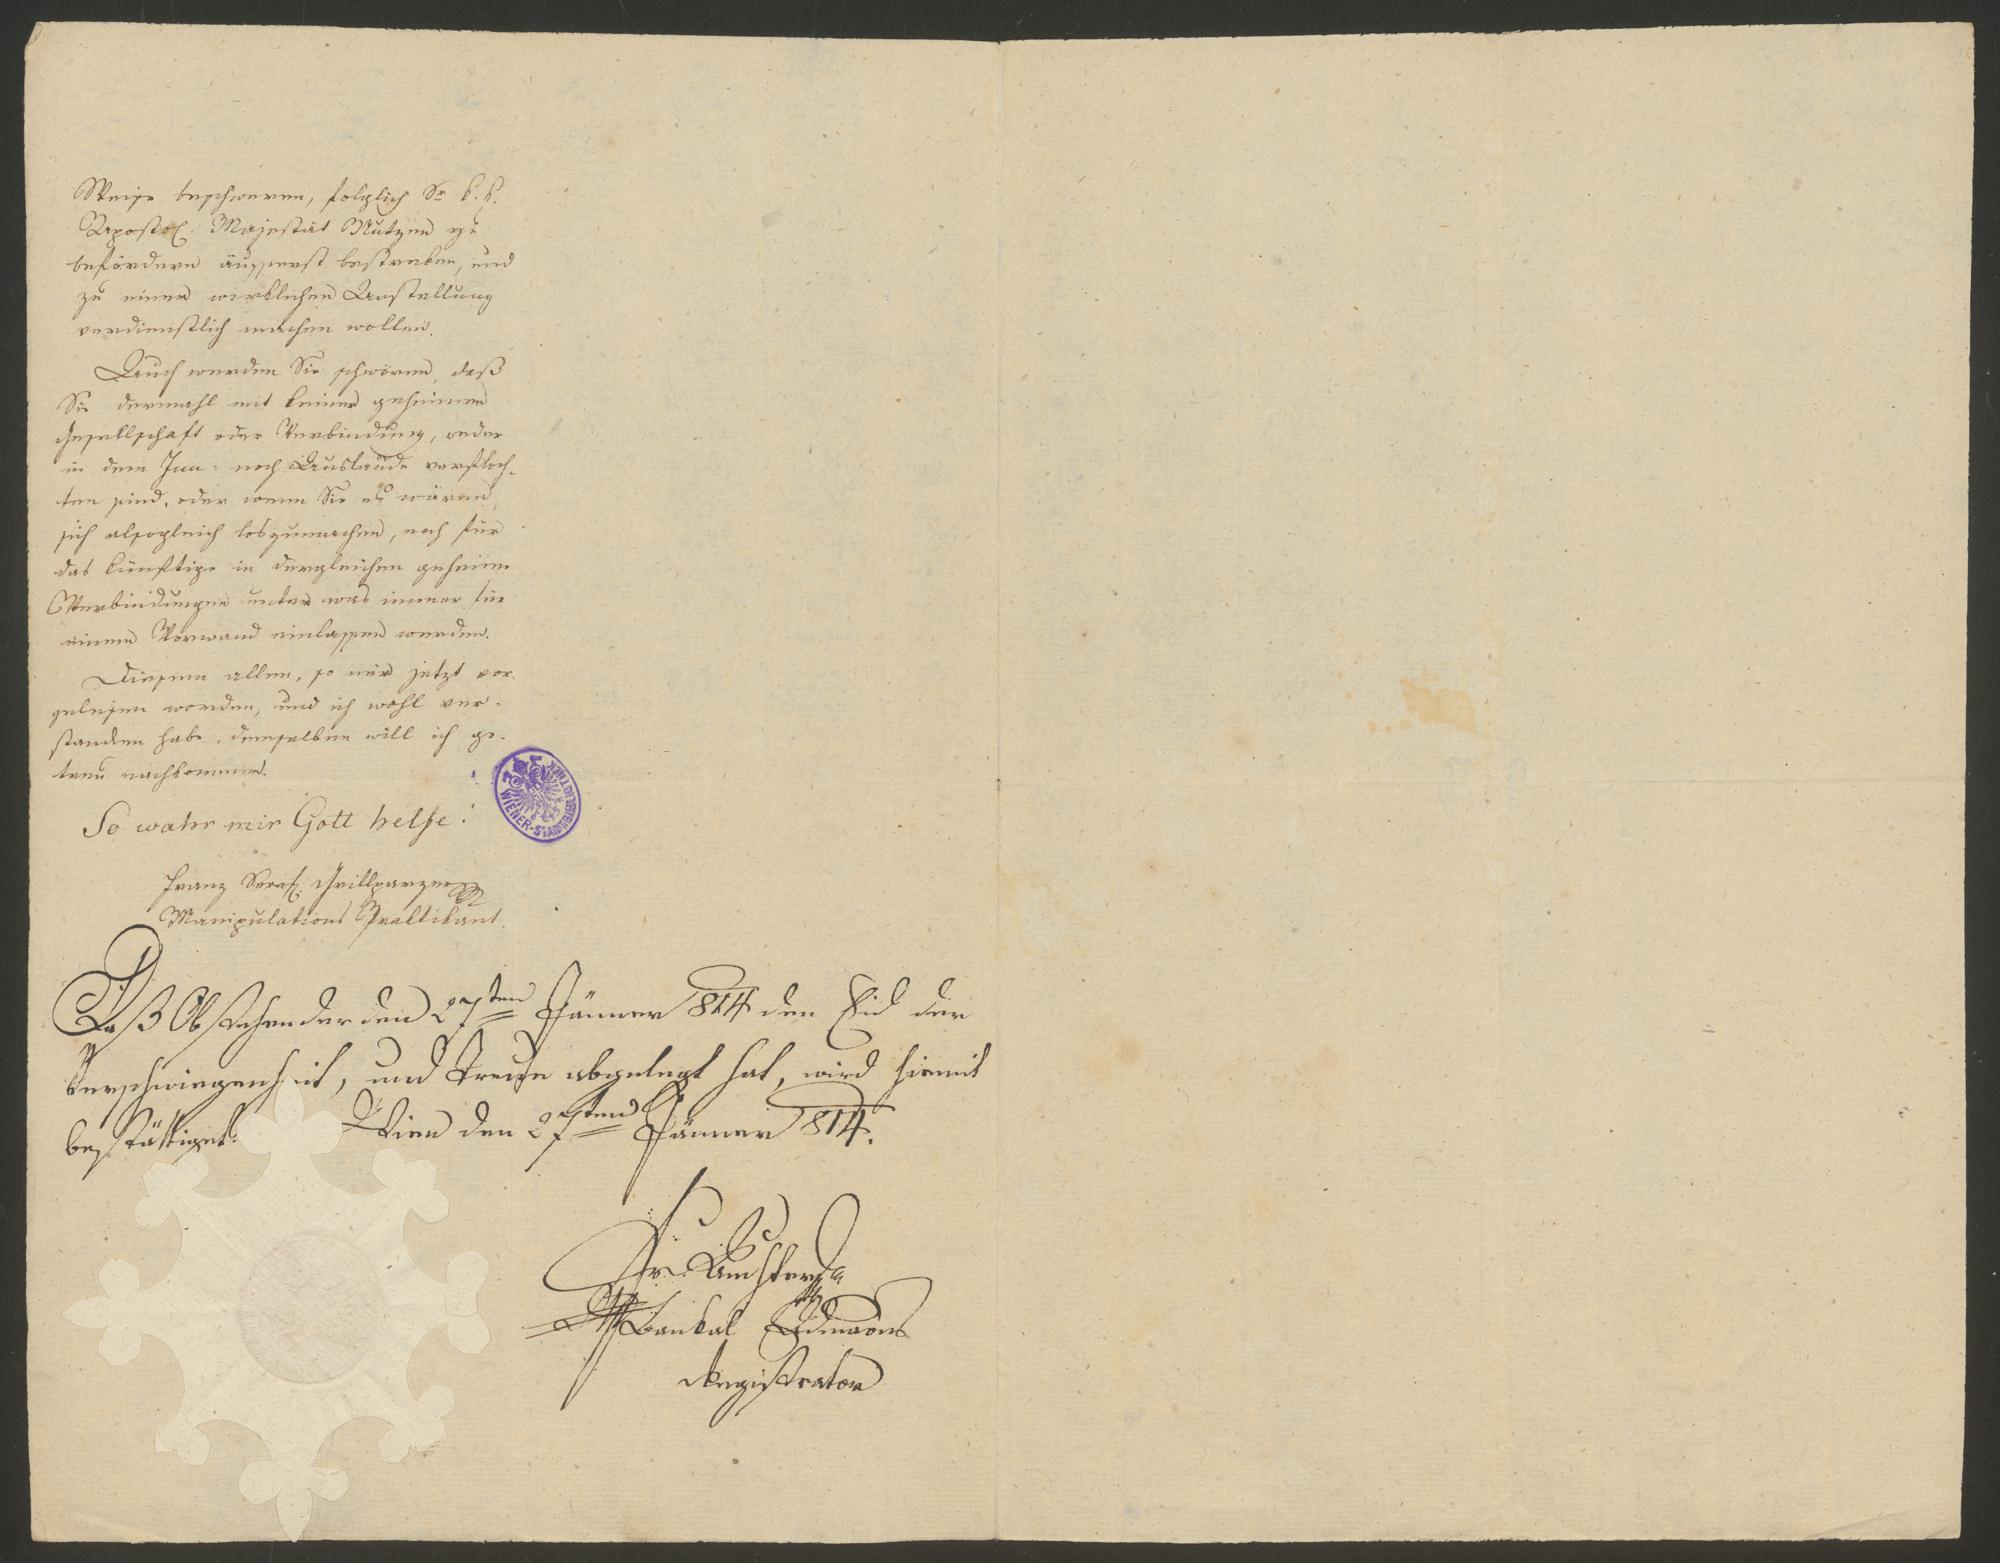 Weise beschweren, folglich Sr k. k.
Apostol. Majestät Nutzen zu
befördern äusserst bestreben, und
zu einer wirklichen Anstellung
verdienstlich machen wollen.
Auch werden Sie schwören, daß
Sie dermahl mit keiner geheimen
Gesellschaft oder Verbindung, weder
in dem Inn- noch Auslande verfloch-
ten sind, oder wenn Sie es wären,
sich alsogleich loszumachen, noch für
das künftige in dergleichen geheime
Verbindungen unter was immer für
einem Vorwand einlassen werden.
Diesem allen, so mir jetzt vor-
gelesen worden, und ich wohl ver-
standen habe, demselben will ich ge-
treu nachkommen.
So wahr mir Gott helfe!
Franz Seraf. Grillparzer
Manipulations Praktikant.
WIENER-STADTBIBLIOTHEK
Daß Obstehender den 27sten Jänner 814 den Eid der
Verschwiegenheit, und Treue abgelegt hat, wird hiemit
bestättiget. Wien den 27sten Jänner 814.
Bankal
Registrator